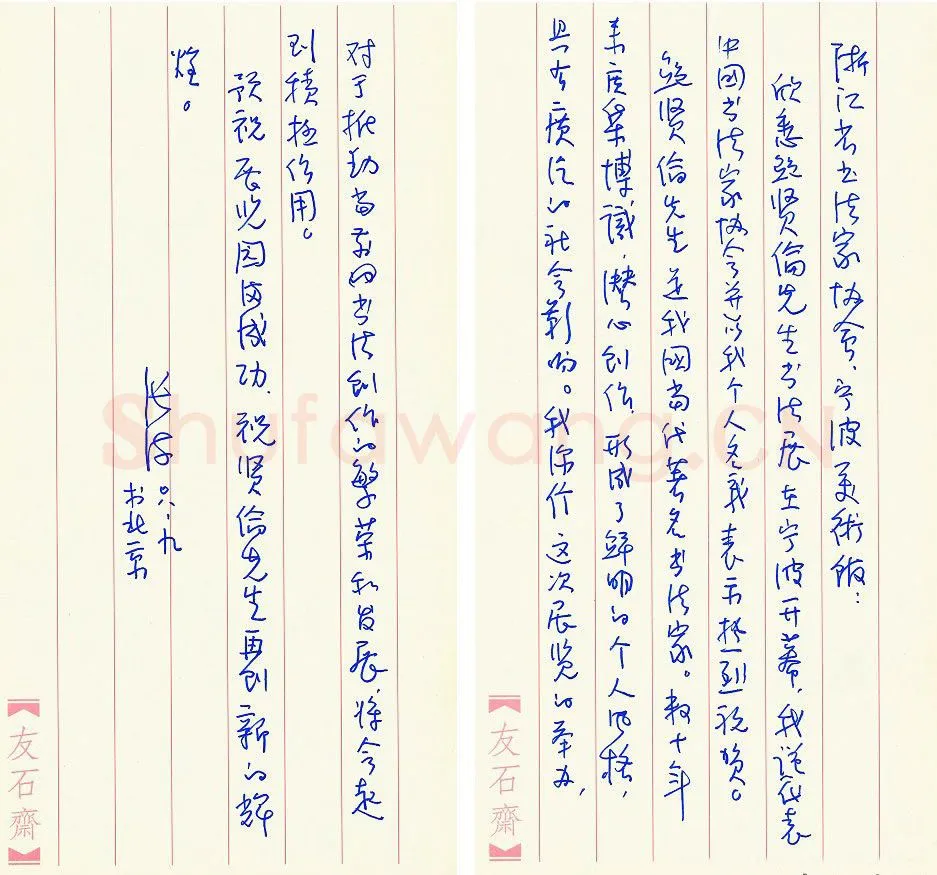 浙江省书法家协会、宁波美術館：
欣悉鲍贤倫先生书法展在宁波开幕，我谨代表
中國书法家协会并以我个人名義表示热烈祝贺。
鲍贤倫先生是我國当代著名书法家。数十年
来广采博識，潜心创作，形成了鲜明的个人风格，
具有廣泛的社会影响。我深信这次展览的举办，
对于推动当前的书法创作的繁荣和发展，将会起
到積极作用。
预祝展览园满成功，祝贤倫先生再创新的辉
煌。
张海 〇六·九
书北京
友石齋
友石齋
Shufawang.CN